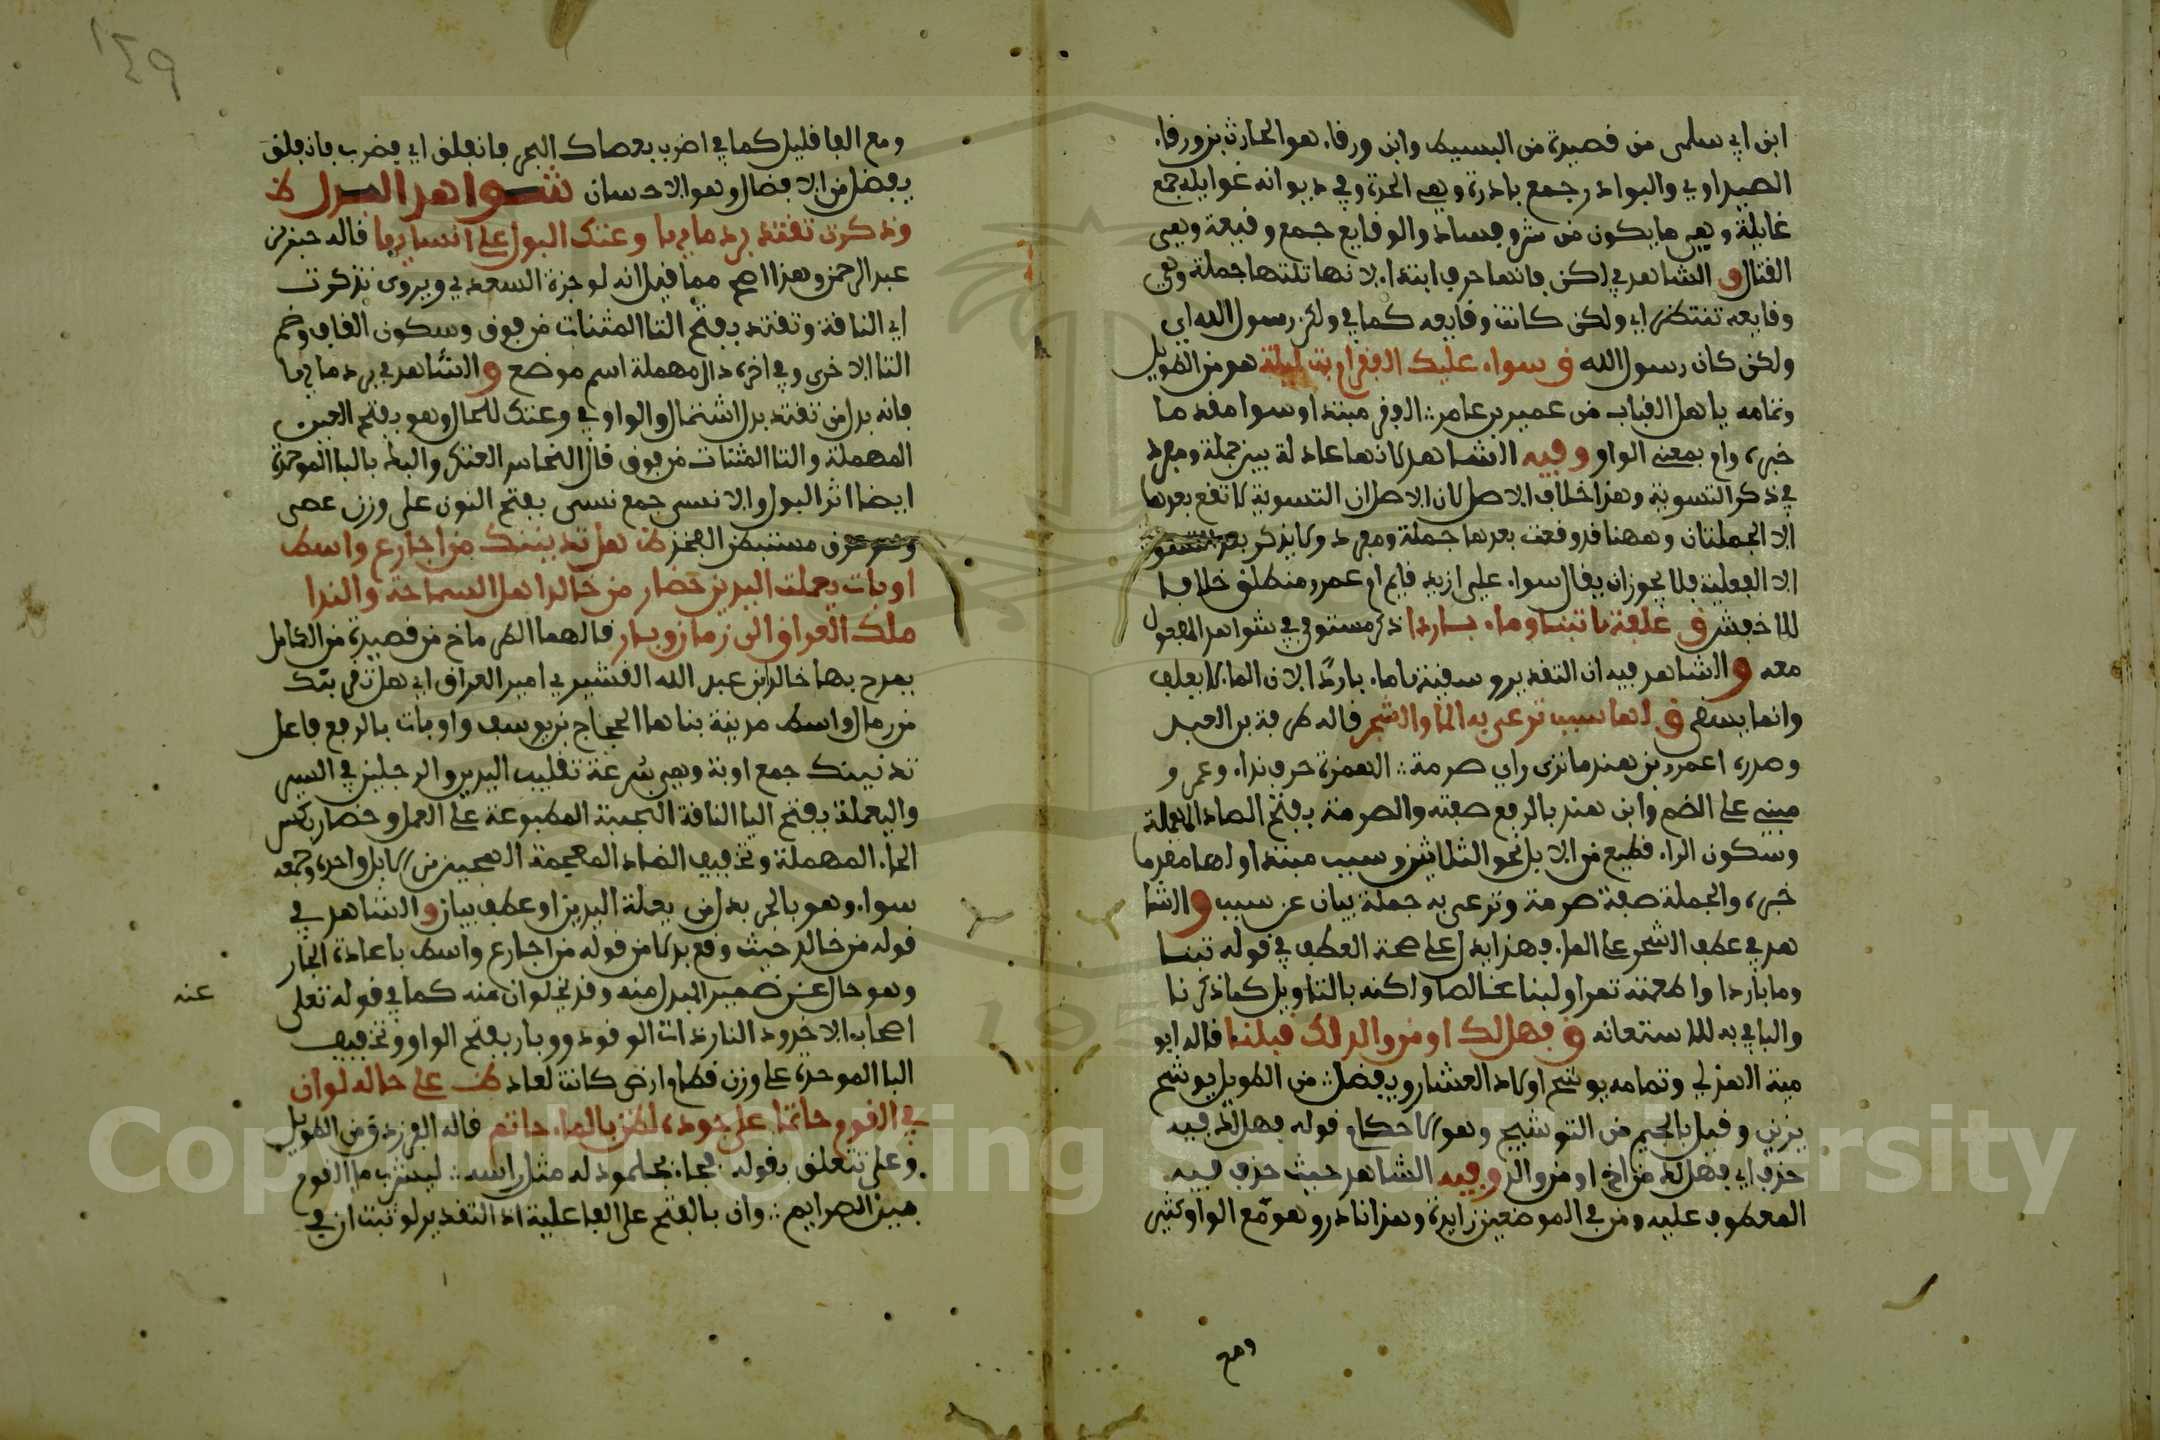 ابن ابي سلمى من قصيدة من البسيط وابن ورقاء هو الحارث بن ورقاء
الصيداوي والبوادر جمع بادرة وهي الحدة وفي ديوانه غوايله جمع
غايلة وهي ما يكون من شر وفساد والوقايع جمع وقيعة وهي
القتال والشاهد في لكن فانها حرف ابتداء لانها تلتها جملة وهي
وقايعه تنتظر اي ولكن كانت وقايعه كما في ولكن رسول الله اي
ولكن كان رسول الله ق سواء عليك الفقر ام بت ليلة هو من الطويل
وتمامه باهل القباب من عمير بن عامر الفقر مبتدا وسوا مقدما
خبره وام بمعنى الواو وفيه الشاهد لانها عادلة بين جملة ومفرد
في ذكر التسوية وهذا خلاف الاصل لان الاصل ان التسوية لا تقع بعدها
الا الجملتان وههنا قد وقعت بعدها جملة ومفرد ولا يذكر بعد
الا الفعلية فلا يجوز ان يقال سواء علي ازيد قايم ام عمرو منطلق خلافا
للاخفش ق علفتها تبنا وماء باردا ذكر مستوفى في شواهد المفعول
معه والشاهد فيه ان التقدير وسقيتها ماء باردا لان الماء لا يعلف
وانما يسقى ق لها سبب ترعى به الما والشجر قاله طرفة بن العبد
وصدره اعمرو بن هند ما ترى راي صرمة الهمزة حرف نداء وعمرو
مبني على الضم وابن هند بالرفع صفته والصرمة بفتح الصاد المهملة
وسكون الراء قطيع من الابل نحو الثلاثين وسبب مبتدا ولها مقدما
خبره والجملة صفة صرمة وترعى به جملة بيان عن سبب والشا
هد في عطف الشجر على الماء فهذا يدل على صحة العطف في قوله تبنا
وما باردا واطعمته تمرا ولبنا خالصا ولكنه بالتاويل كما ذكرنا
والبا في به للاستعانه ق فهل لك او من والد لك قبلنا قاله ابو
مية الهذلي وتمامه يوشح اولاد العشار ويفضل من الطويل يوشح
يزين وقيل بالجيم من التوشيج وهو الاحكام قوله فهل لك فيه
حذف اي فهل لك من اخ او من والد وفيه الشاهد حيث حذف فيه
المعطوف عليه ومن في الموضعين زايدة وهذا نادر وهو مع الواو كثير
ومع
١٤٩
ومع الفا قليل كما في اضرب بعصاك البحر فانفلق اي فضرب فانفلق
يفضل من الافضال وهو الاحسان شواهد البدل ظ
وذكرت تقتد برد مايها وعتك البول على انسايها قاله جبر بن
عبد الرحمن وهذا اصح مما قيل انه لوجزة السعدي ويروى تذكرت
اي الناقة وتقتد بفتح التا المثنات من فوق وسكون القاف وضم
التا الاخرى وفي اخره دال مهملة اسم موضع والشاهد في برد مايها
فانه بدل من تقتد بدل اشتمال والواو في وعتك للحال وهو بفتح العين
المهملة والتا المثنات من فوق قال النحاس العتك والبطه بالبا الموحدة
ايضا اثر البول والانسى جمع نسى بفتح النون على وزن عصى
وهو عرق مستبطن الفخذ ظ هل تدنينك من اجارع واسط
اوبات يعملت اليدين حضار من خالد اهل السماحة والندا
ملك العراق الى زمان وبار قالهما الطرماح من قصيدة من الكامل
يمدح بها خالد بن عبد الله القشيري امير العراق اي هل تقربنك
من رمال واسط مدينة بناها الحجاج بن يوسف واوبات بالرفع فاعل
تدنينك جمع اوبة وهي سرعة تقليب اليدين والرجلين في السير
واليعملة بفتح اليا الناقة النجيبة المطبوعة على العمل وحضار بكسر
الحاء المهملة وتخفيف الضاد المعجمة الهجين من الابل واحده وجمعه
سواء وهو بالجر بدل من يعملة اليدين او عطف بيان والشاهد في
قوله من خالد حيث وقع بدلا من قوله من اجارع واسط باعادة الجار
وهو خال عن ضمير المبدل منه وقد يخلوان منه كما في قوله تعلى
عنه
اصحاب الاخدود النار ذات الوقود ووبار بفتح الواو وتخفيف
البا الموحدة على وزن قطام ارض كانت لعاد ظ على حاله لو ان
في القوم حاتما على جوده لضن بالماء حاتم قاله الفرزدق من الطويل
وعلى تتعلق بقوله فجاء بجلمود له مثل راسه ليشرب ما القوم
بين الصرايم وان بالفتح على الفاعلية اذ التقدير لو ثبت ان في